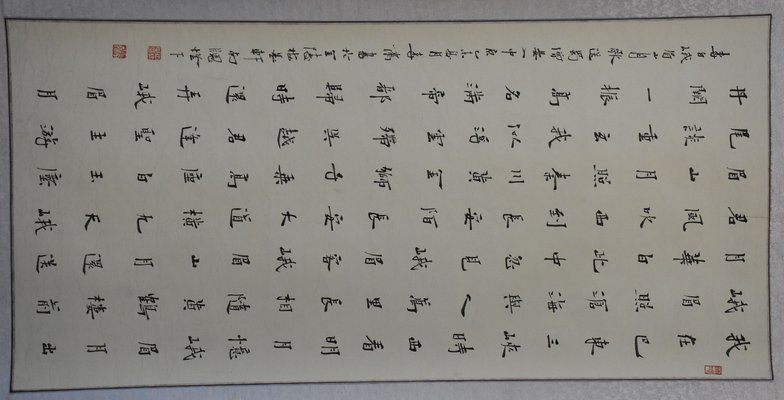 我在巴東三峽時西看明月憶峨眉月出
峨眉照滄海與人萬里長相隨黃鶴樓前
月華白此中忽見峨眉客峨眉山月還送
君風吹西到長安陌長安大道橫九天峨
眉山月照秦川黃金獅子乘高座白玉麈
尾談重玄我似浮雲滯吳越君逢聖主遊
丹闕一振高名滿帝都歸時還弄峨眉月
李白峨眉山月歌送蜀僧晏入中京